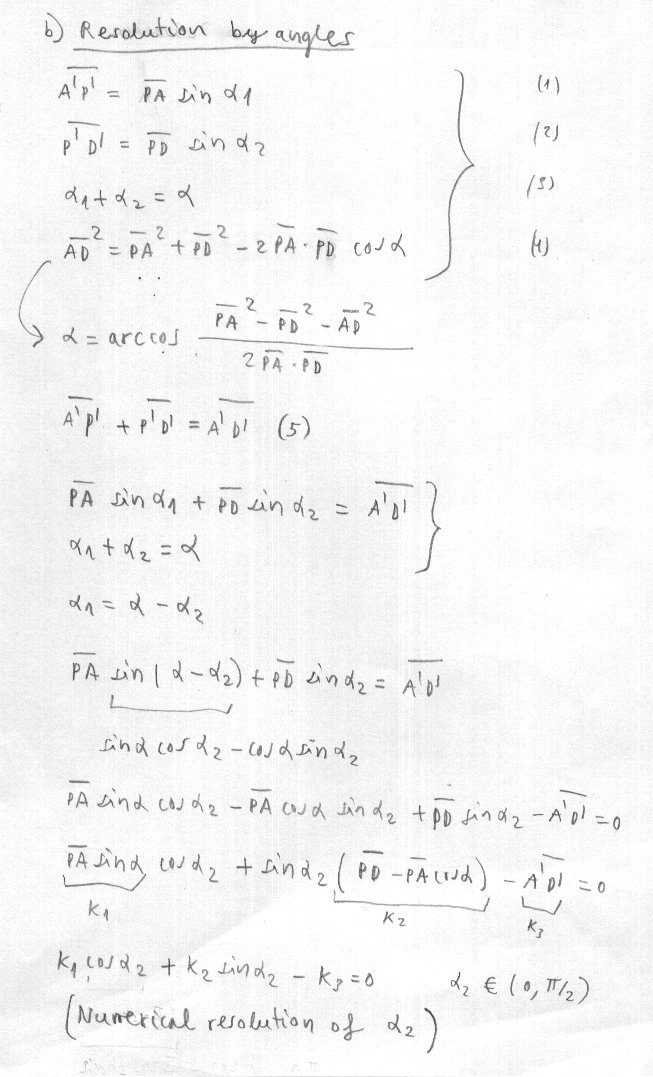 b) Resolution by angles
A'P' = PA sin α1 (1)
P'D' = PD sin α2 (2)
α1 + α2 = α (3)
AD² = PA² + PD² - 2 PA · PD cos α (4)
α = arccos (PA² - PD² - AD²) / (2 PA · PD)
A'P' + P'D' = A'D' (5)
PA sin α1 + PD sin α2 = A'D'
α1 + α2 = α
α1 = α - α2
PA sin(α - α2) + PD sin α2 = A'D'
sin α cos α2 - cos α sin α2
PA sin α cos α2 - PA cos α sin α2 + PD sin α2 - A'D' = 0
PA sin α cos α2 + sin α2 (PD - PA cos α) - A'D' = 0
K1 K2 K3
K1 cos α2 + K2 sin α2 - K3 = 0 α2 € (0, π/2)
(Numerical resolution of α2)